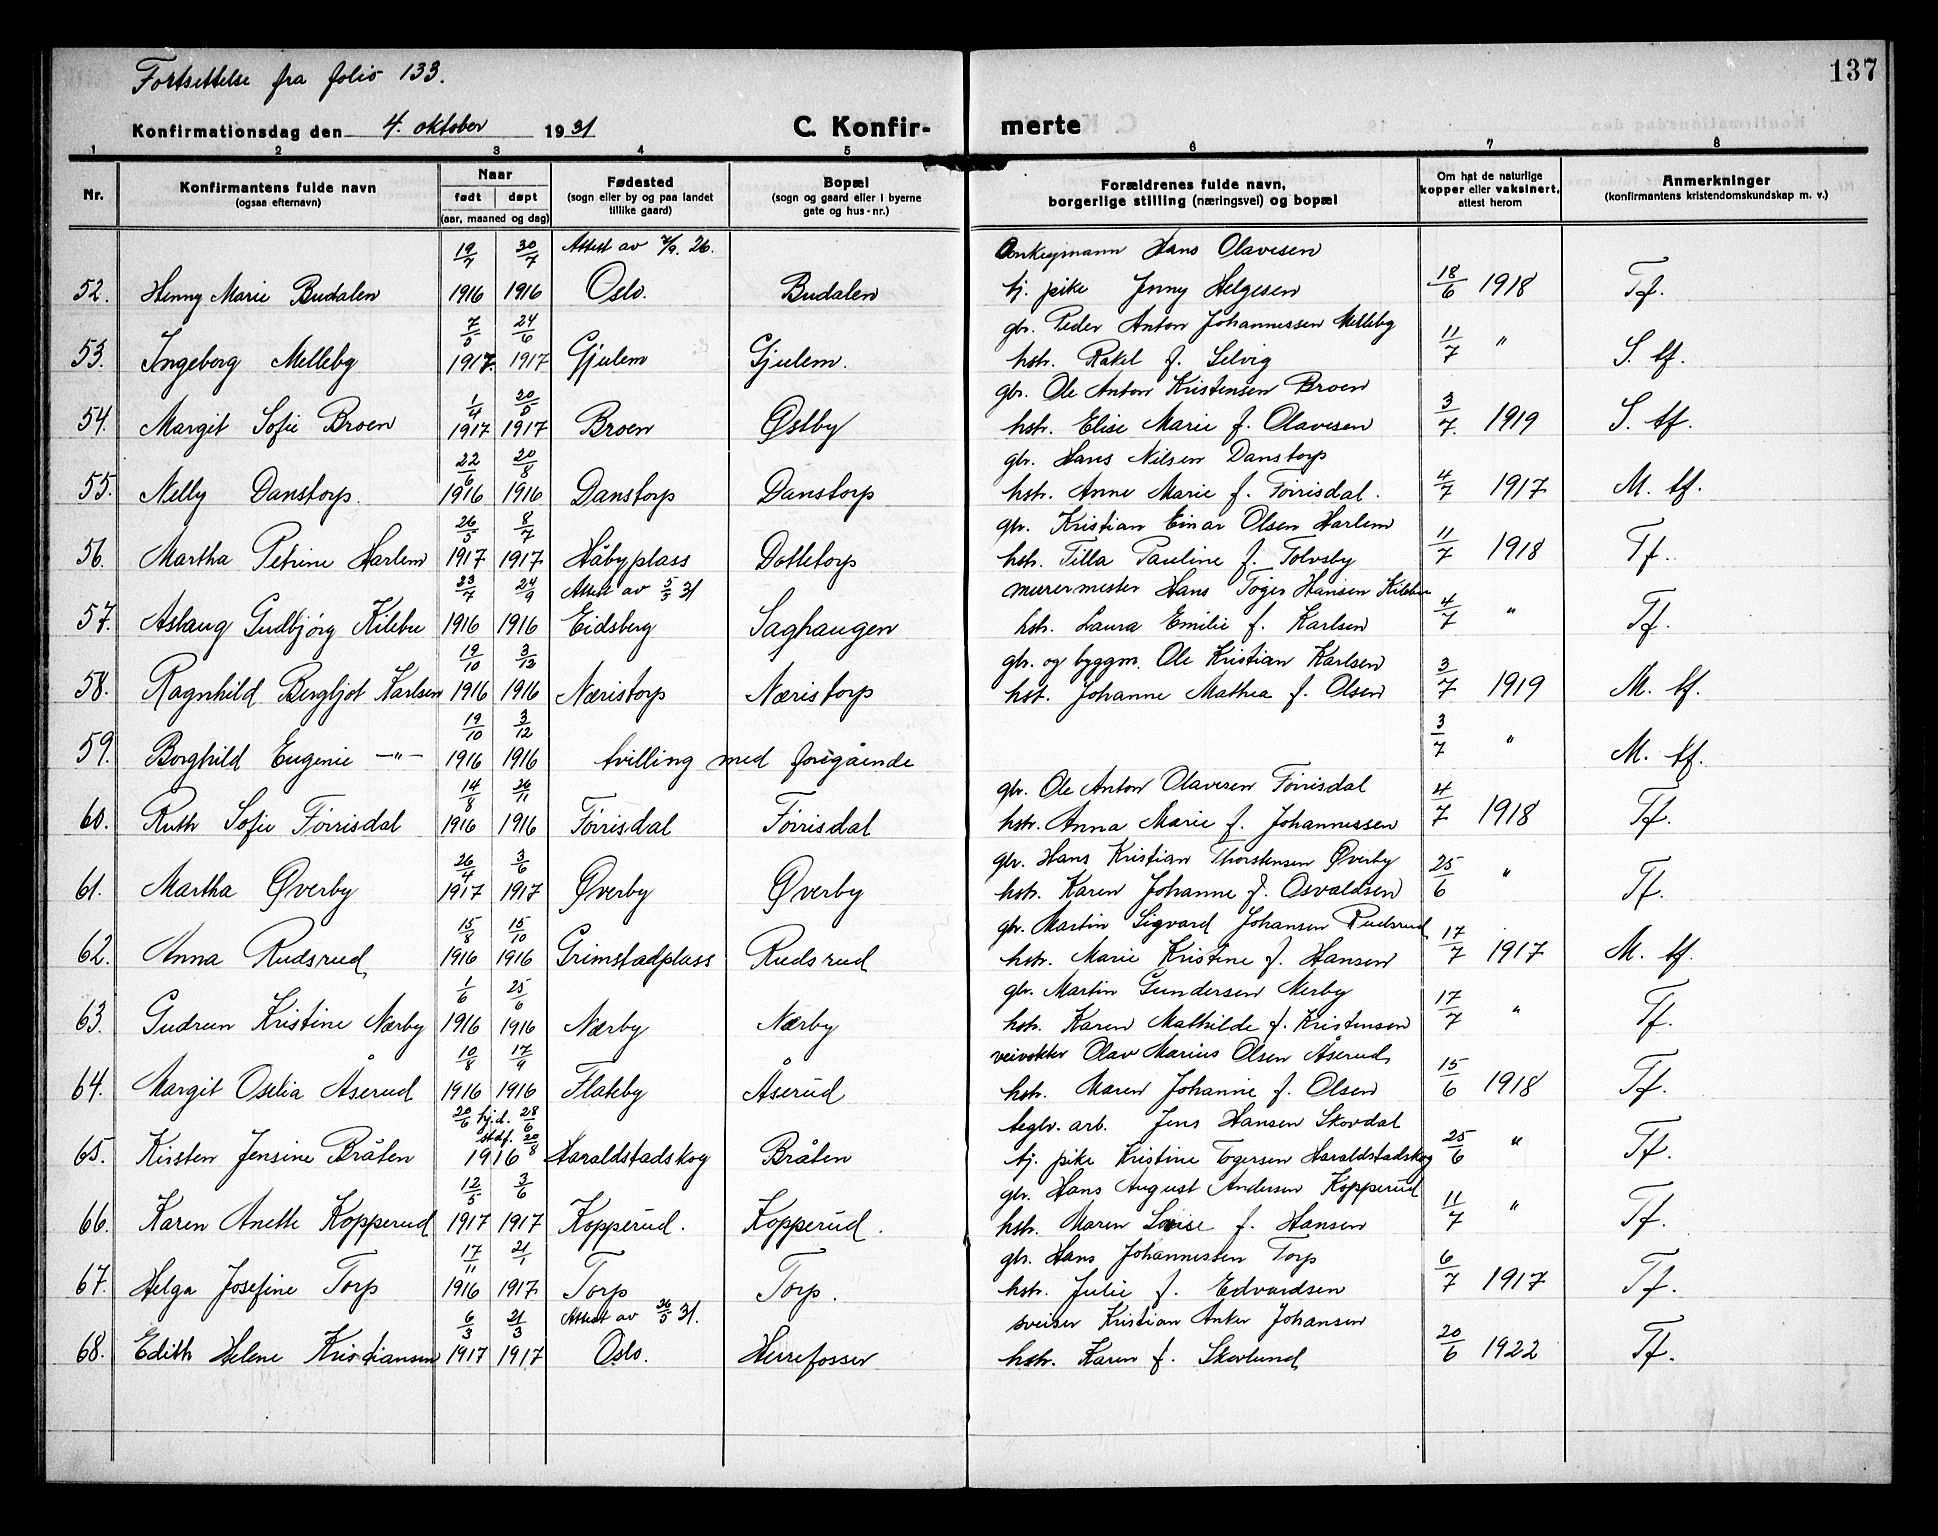 137
Fortsettelse fra folio 133.
Konfirmationsdag den 4. oktober 1931
C. Konfir- merte
1 2 3 4 5 6 7 8
Nr.
Konfirmantens fulde navn
(ogsaa efternavn)
Naar
født døpt
(aar, maaned og dag)
Fødested
(sogn eller by og paa landet
tillike gaard)
Bopæl
(sogn og gaard eller i byerne
gate og hus-nr.)
Forældrenes fulde navn,
borgerlige stilling (næringsvei) og bopæl
Om hat de naturlige
kopper eller vaksinert,
attest herom
Anmerkninger
(konfirmantens kristendomskundskap m. v.)
19/7 30/7 Attest av 7/9. 26. Hans Olavesen
52. Henny Marie Budalen 1916 1916 Oslo. Budalen tj. pike Jenny Helgesen 18/6 1918 Tf.
7/5 24/6 gbr. Peder Anton Johannessen Melleby
53. Ingeborg Melleby 1917. 1917 Gjulem Gjulem. hstr. Rakel f. Selvig 11/7 " S. tf.
1/4 20/5 gbr. Ole Anton Kristensen Broen
54. Margit Sofie Broen 1917 1917 Broen Østby hstr. Elise Marie f. Olavesen 3/7. 1919 S. tf.
22/6 20/8 gbr. Hans Nilsen Danstorp
55. Nelly Danstorp. 1916 1916 Danstorp Danstorp hstr. Anne Marie f. Tørrisdal. 4/7 1917 M. tf.
26/5 8/7 gbr. Kristian Einar Olsen Harlem
56. Martha Petrine Harlem 1917 1917 Håbyplass Dottetorp hstr. Tilla Pauline f. Tolvsby 11/7 1918 Tf.
23/7 24/9 Attest av 5/5 31 murermester Hans Tøger Hansen Kilebu
57. Aslaug Gudbjørg Kilebu 1916 1916 Eidsberg Saghaugen hstr. Laura Emilie f. Karlsen 4/7 " Tf.
19/10 3/12 gbr. og byggm. Ole Kristian Karlsen
58. Ragnhild Bergljot Karlsen 1916 1916 Næristorp Næristorp hst. Johanne Mathea f. Olsen 3/7 1919 M. tf.
19/10 3/12
59. Borghild Eugenie —"— 1916 1916 tvilling med foregående 3/7 " M. tf.
14/8 26/11 gbr. Ole Anton Olavesen Tørrisdal
60. Ruth Sofie Tørrisdal 1916 1916 Tørrisdal Tørrisdal hstr. Anna Marie f. Johannessen 4/7 1918 Tf.
26/4 3/6 gbr. Hans Kristian Thorstensen Øverby
61. Martha Øverby 1917 1917 Øverby Øverby hstr. Karen Johanne f. Osvaldsen 25/6 " Tf.
15/8 15/10 gbr. Martin Sigvard Johansen Rudsrud
62. Anna Rudsrud 1916 1916 Grimstadplass Rudsrud hstr. Marie Kristine f. Hansen 17/7 1917 M. tf.
1/6 25/6 gbr. Martin Gundersen Nerby
63. Gudrun Kristine Nærby 1916 1916 Nærby Nærby hstr. Karen Mathilde f. Kristensen 17/7 " Tf.
10/8 17/9 veivokter Olav Marius Olsen Åserud
64. Margit Oselia Åserud 1916 1916 Flateby Åserud hstr. Maren Johanne f. Olsen 15/6 1918 Tf.
20/6 hj.d. 28/6 teglv. arb. Jens Hansen Skovdal
stdf. 20/8
65. Kirsten Jensine Bråten 1916 Haraldstadskog Bråten tj. pike Kristine Togersen Haraldstadskog 25/6 " Tf.
12/5 3/6 gbr. Hans August Andersen Kopperud
66. Karen Anette Kopperud 1917 1917 Kopperud. Kopperud. hstr. Maren Lovise f. Hansen 11/7 " Tf.
17/11 21/1 gbr. Hans Johannessen Torp
67. Helga Josefine Torp 1916 1917 Torp Torp. hstr. Julie f. Edvardsen 6/7 1917 Tf.
6/3 21/3 Attest av 26/5 31. sveiser Kristian Anker Johansen
68. Edith Helene Kristiansen 1917 1917 Oslo. Herrefosser hstr. Karen f. Skovlund 20/6 1922 Tf.